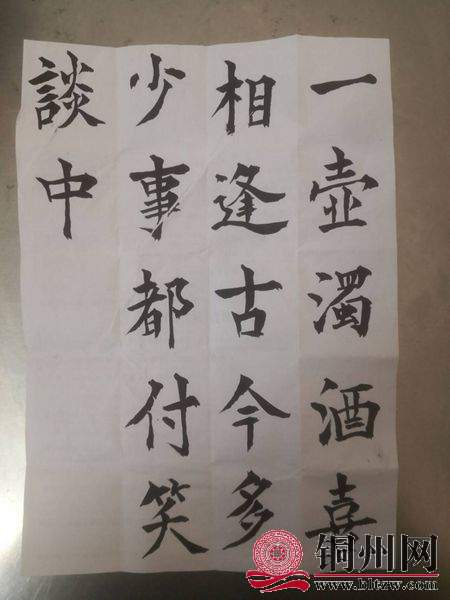 一壺濁酒喜
相逢古今多
少事都付笑
談中
铜州网
www.bltzw.com